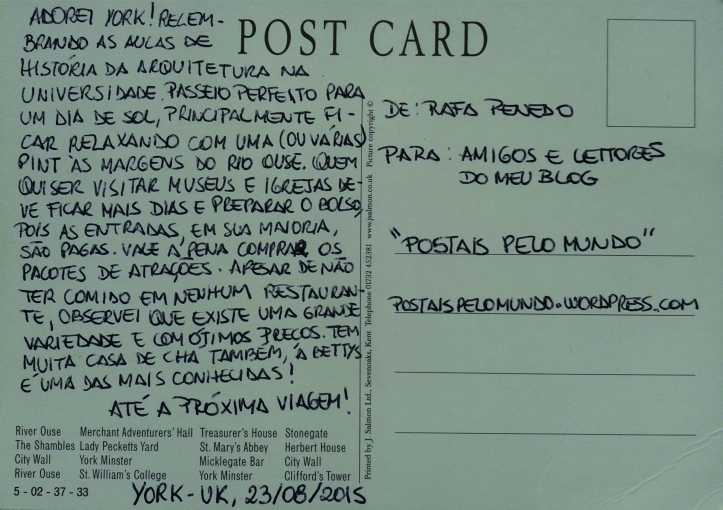 ADOREI YORK! RELEM-
BRANDO AS AULAS DE
HISTÓRIA DA ARQUITETURA NA
UNIVERSIDADE. PASSEIO PERFEITO PARA
UM DIA DE SOL, PRINCIPALMENTE FI-
CAR RELAXANDO COM UMA (OU VÁRIAS)
PINT ÀS MARGENS DO RIO OUSE. QUEM
QUISER VISITAR MUSEUS E IGREJAS DE-
VE FICAR MAIS DIAS E PREPARAR O BOLSO,
POIS AS ENTRADAS, EM SUA MAIORIA,
SÃO PAGAS. VALE A PENA COMPRAR OS
PACOTES DE ATRAÇÕES. APESAR DE NÃO
TER COMIDO EM NENHUM RESTAURAN-
TE, OBSERVEI QUE EXISTE UMA GRANDE
VARIEDADE E COM ÓTIMOS PREÇOS. TEM
MUITA CASA DE CHÁ TAMBÉM, À BETTYS
É UMA DAS MAIS CONHECIDAS!
ATÉ A PRÓXIMA VIAGEM!
River Ouse Merchant Adventurers' Hall Treasurer's House Stonegate
The Shambles Lady Pecketts Yard St. Mary's Abbey Herbert House
City Wall York Minster Micklegate Bar City Wall
River Ouse St. William's College York Minster Clifford's Tower
5 - 02 - 37 - 33
YORK - UK, 23/08/2015
POST CARD
Printed by J. Salmon Ltd., Sevenoaks, Kent Telephone 01732 452381 www.jsalmon.co.uk Picture copyright ©
DE: RAFA PENEDO
PARA: AMIGOS E LEITORES
DO MEU BLOG
"POSTAIS PELO MUNDO"
POSTAISPELOMUNDO.WORDPRESS.COM